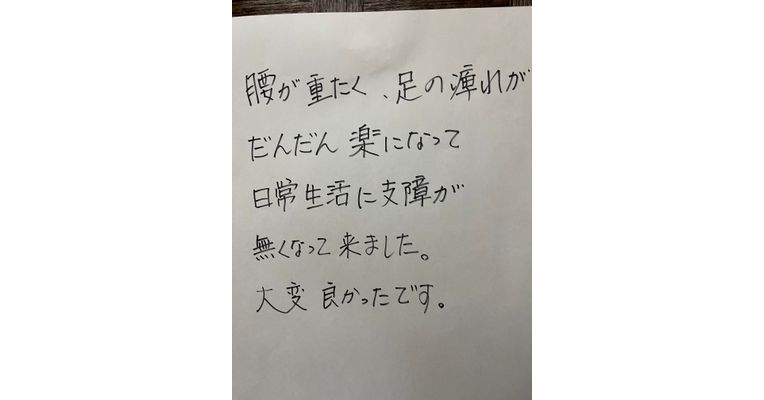 腰が重たく、足の痺れが
だんだん楽になって
日常生活に支障が
無くなって来ました。
大変良かったです。